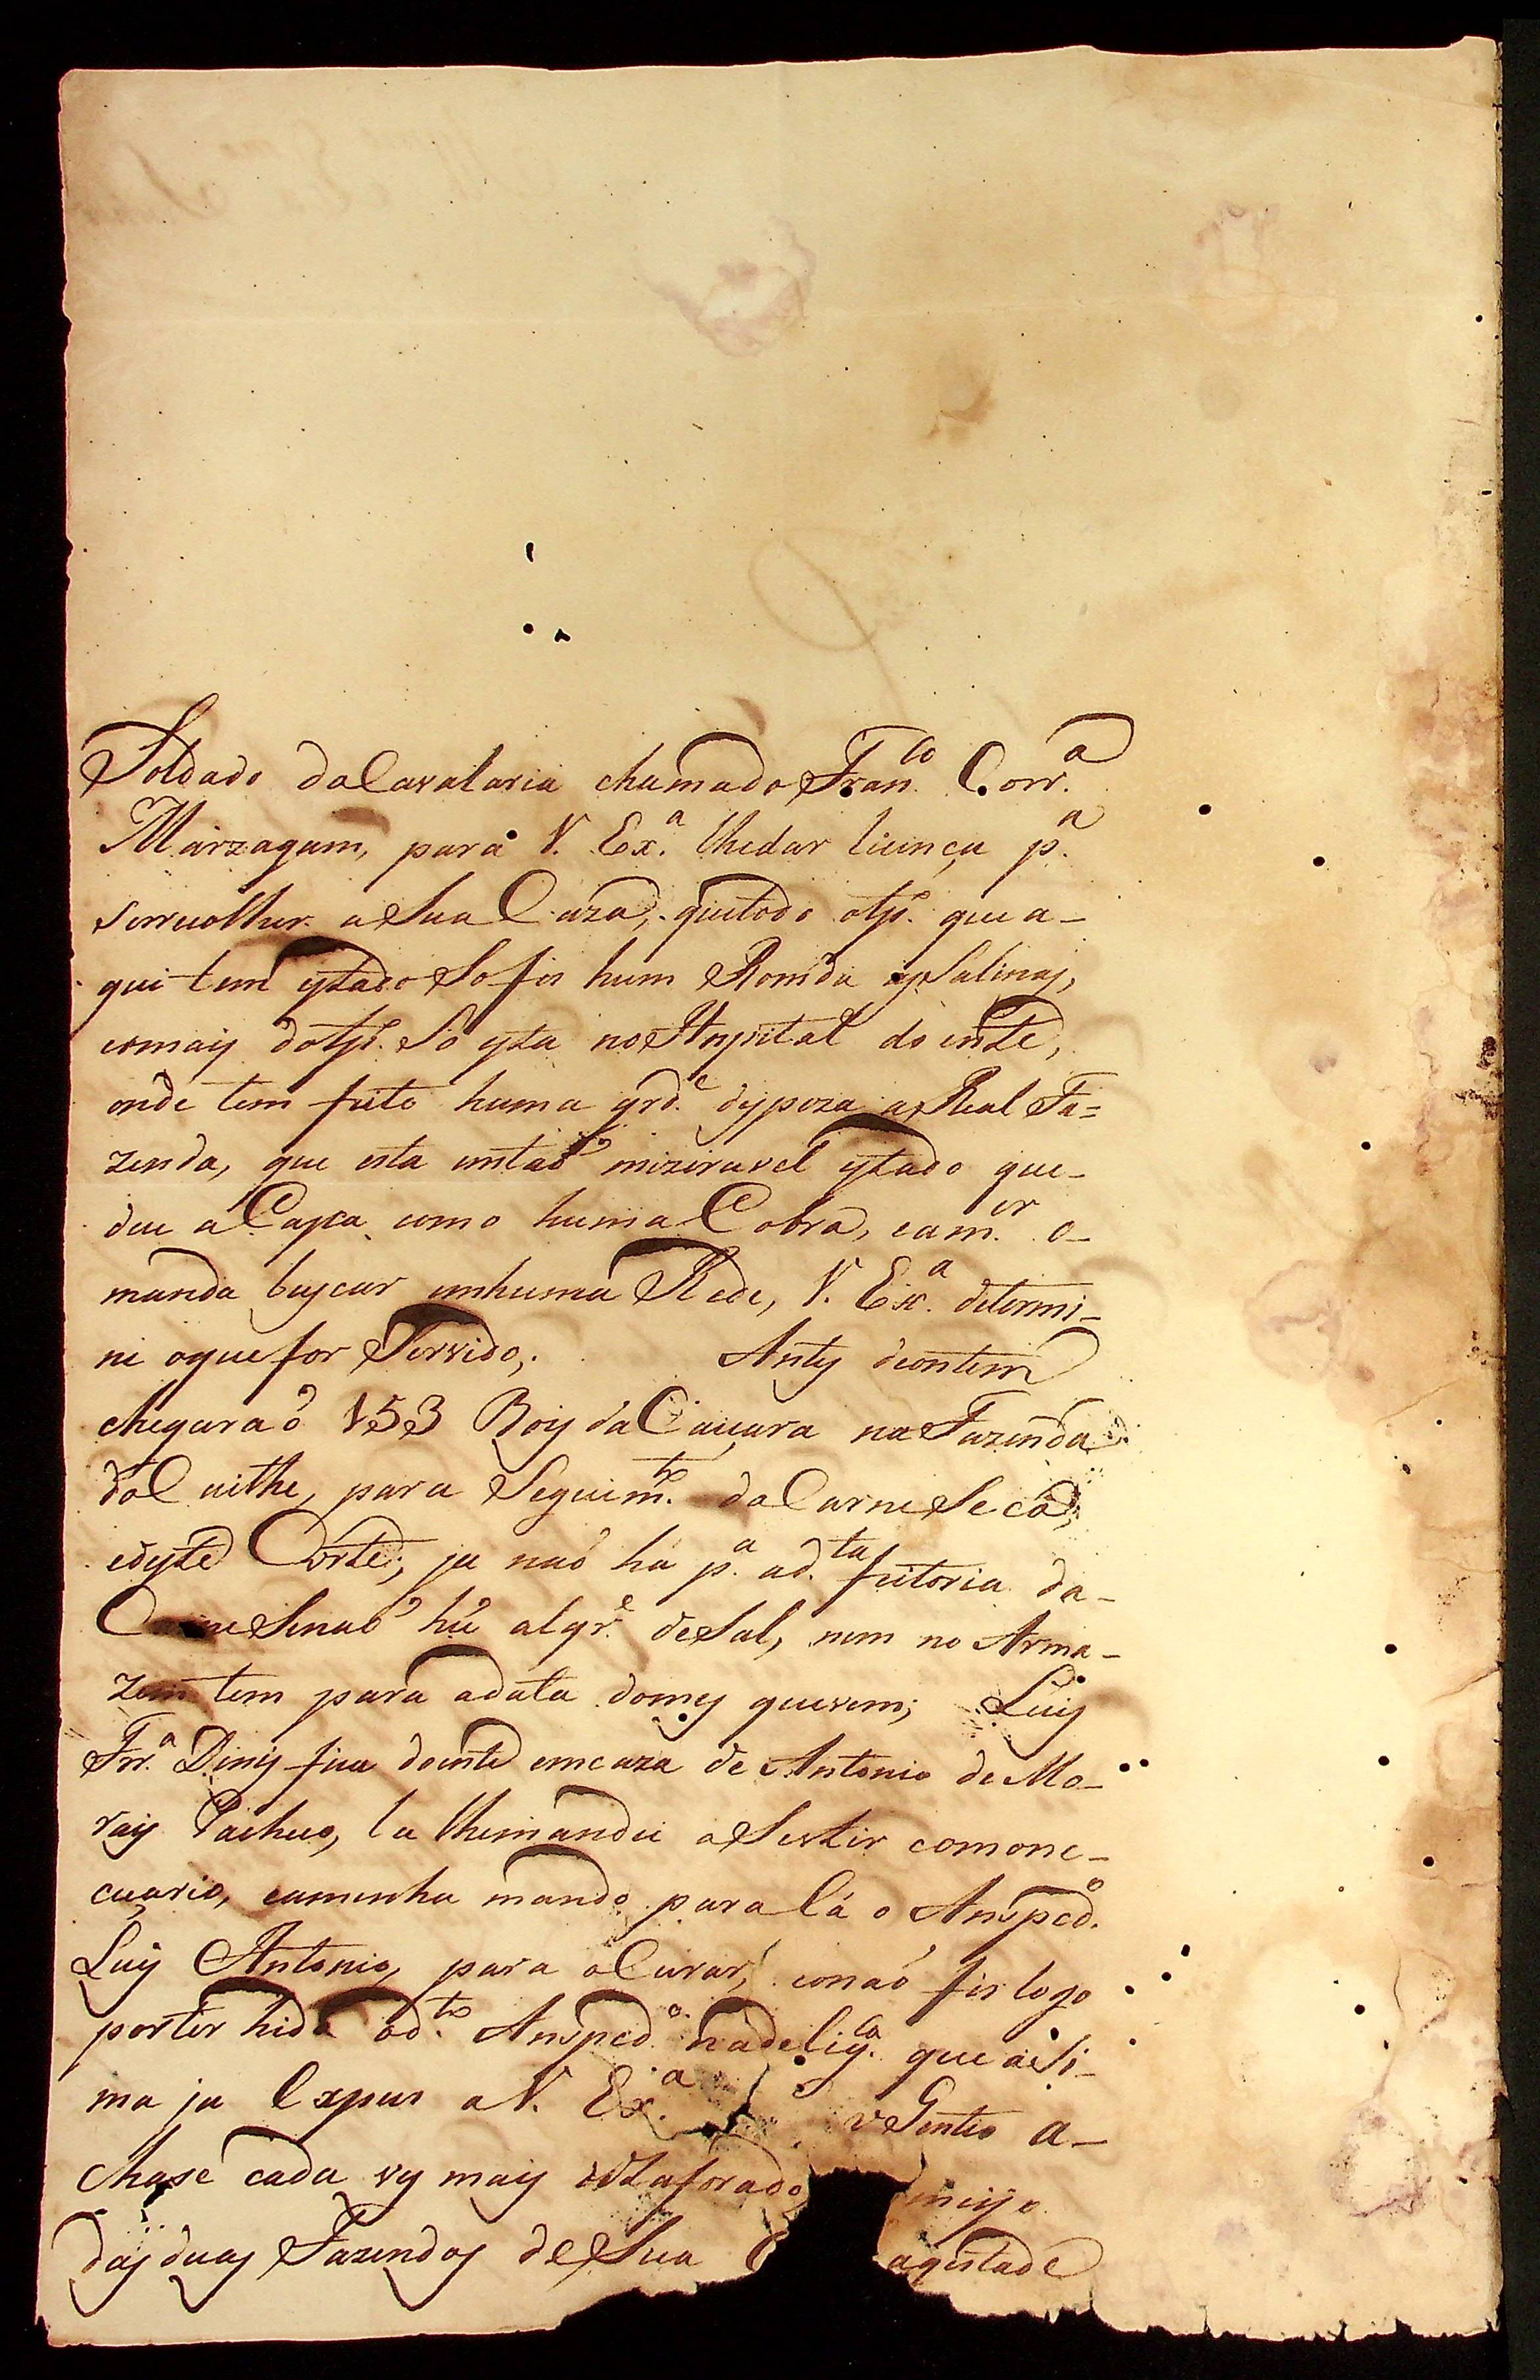 Soldado da Cavalaria chamado Fran.co Corr.a
Marzagam, para V. Ex.a lhedar licença p.a
serrecolher a Sua Caza, quetodo otp.o que a-
qui tem estado So fes hum Ronda as Salinas,
eomais dotp.o Só esta no Hospital doente,
onde tem feito huma grd.e despeza a Real Fa=
zenda, que esta emtaõ mizeravel estado que-
deu a Casca como huma Cobra, eam.er o-
manda buscar emhuma Rede, V. Ex.a determi-
ne oquefor Servido; Antes deontem
chegaraõ 153 Bois da Caiçara na Fazenda
do Caethe, para Seguim.to da Carne Seca,
edeste Corte; ja naõ há p.a ad.ta feitoria da-
Carne Senaõ hũ alqr.e deSal, nem no Arma-
zem tem para adata domes quevem; Luis
Frr.a Dinis fica doente emcaza de Antonio de Mo-
rais Pacheco, la lhemandei aSestir comone-
ceçario, eamenha mando para lá o Anspcd.o
Luis Antonio, para oCurar, eonaõ fis logo
porter hido od.to Anspcd.o nadelig.ca que aSi-
ma ja Expus a V. Ex.a oGentio a-
chase cada ves mais dezaforado
das duas Fazendas deSua agestade